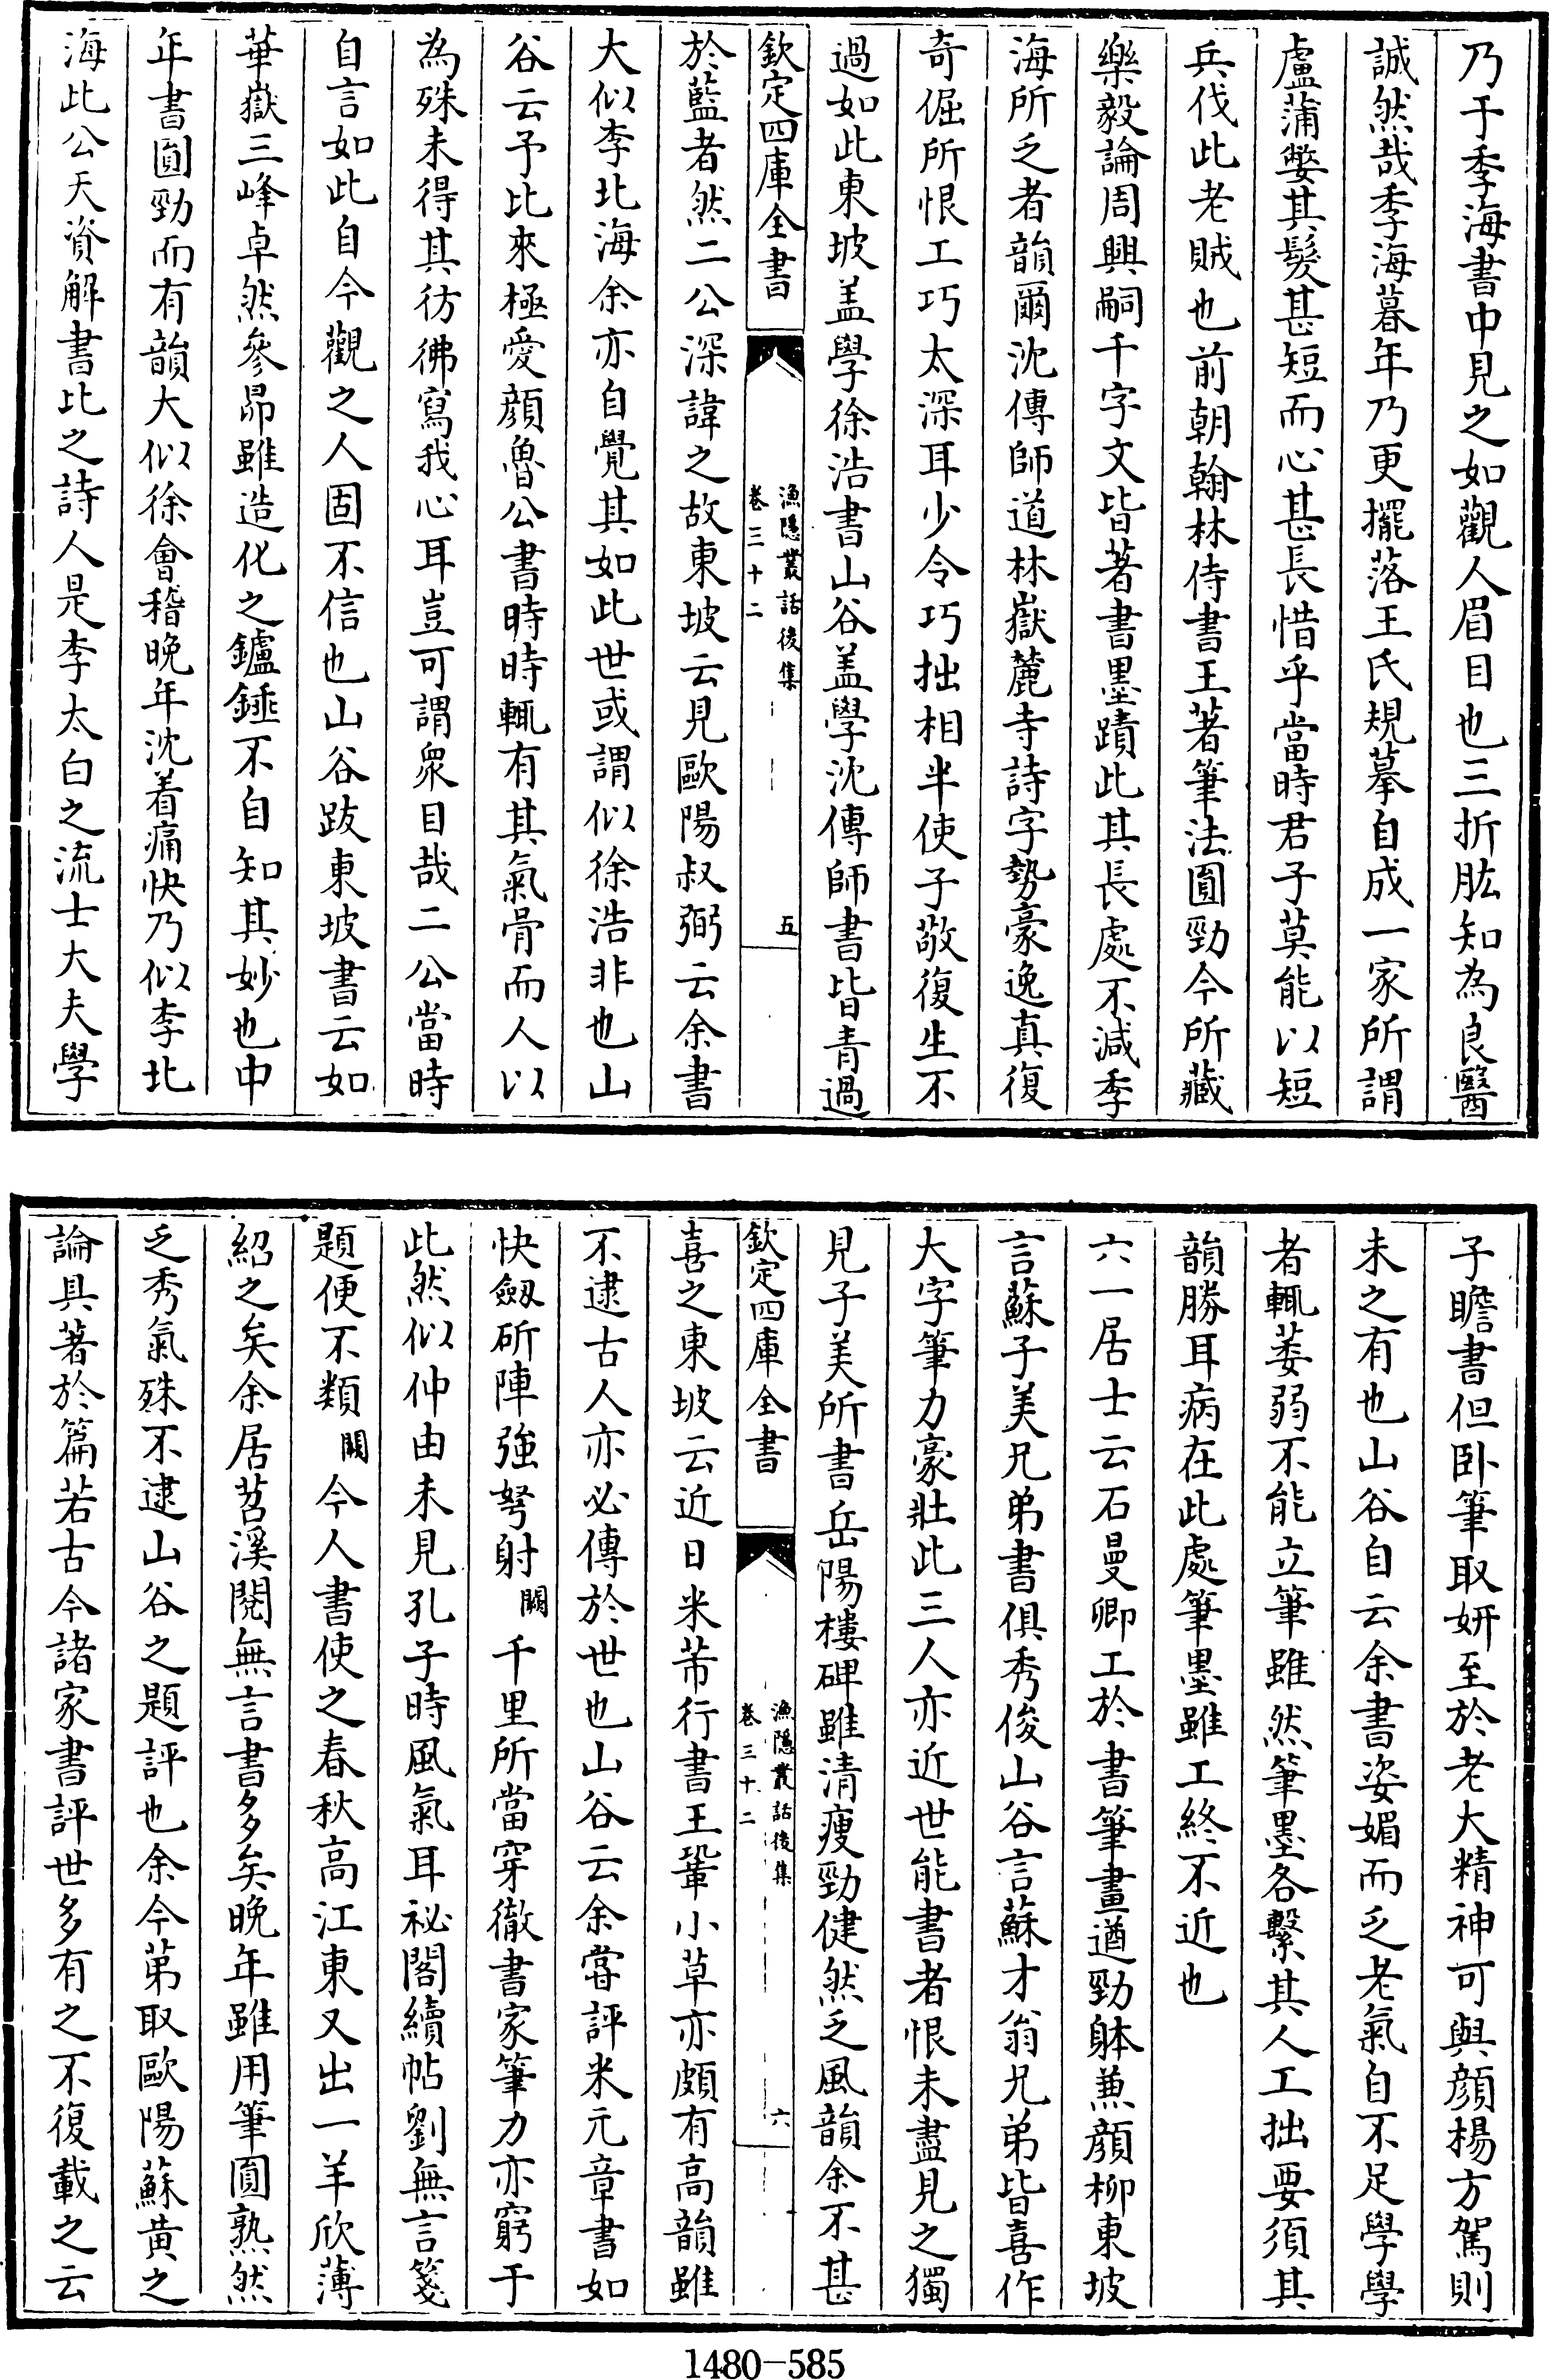 乃于季海書中見之如觀人眉目也三折肱知為良醫
誠然哉季海暮年乃更擺落王氏規摹自成一家所謂
盧蒲嫳其髮甚短而心甚長惜乎當時君子莫能以短
兵伐此老賊也前朝翰林侍書王著筆法圓勁今所藏
樂毅論周興嗣千字文皆著書墨蹟此其長處不減季
海所乏者韻爾沈傳師道林嶽麓寺詩字勢豪逸真復
奇倔所恨工巧太深耳少令巧拙相半使子敬復生不
過如此東坡盖學徐浩書山谷盖學沈傳師書皆青過
欽定四庫全書
漁隱叢話後集
卷三十二
五
於藍者然二公深諱之故東坡云見歐陽叔弼云余書
大似李北海余亦自覺其如此世或謂似徐浩非也山
谷云予比來極愛顏魯公書時時輒有其氣骨而人以
為殊未得其彷彿寫我心耳豈可謂衆目哉二公當時
自言如此自今觀之人固不信也山谷跋東坡書云如
華嶽三峰卓然參昴雖造化之鑪錘不自知其妙也中
年書圓勁而有韻大似徐會稽晚年沈着痛快乃似李北
海此公天資解書比之詩人是李太白之流士大夫學
子瞻書但卧筆取妍至於老大精神可與顏楊方駕則
未之有也山谷自云余書姿媚而乏老氣自不足學學
者輒萎弱不能立筆雖然筆墨各繫其人工拙要須其
韻勝耳病在此處筆墨雖工終不近也
六一居士云石曼卿工於書筆畫遒勁躰兼顏柳東坡
言蘇子美兄弟書俱秀俊山谷言蘇才翁兄弟皆喜作
大字筆力豪壯此三人亦近世能書者恨未盡見之獨
見子美所書岳陽樓碑雖清瘦勁健然乏風韻余不甚
欽定四庫全書
漁隱叢話後集
卷三十二
六
喜之東坡云近日米芾行書王鞏小草亦頗有高韻雖
不逮古人亦必傳於世也山谷云余嘗評米元章書如
快劔斫陣強弩射闕千里所當穿徹書家筆力亦窮于
此然似仲由未見孔子時風氣耳祕閣續帖劉無言箋
題便不類闕今人書使之春秋高江東又出一羊欣薄
紹之矣余居苕溪閱無言書多多矣晚年雖用筆圓熟然
乏秀氣殊不逮山谷之題評也余今苐取歐陽蘇黄之
論具著於篇若古今諸家書評世多有之不復載之云
1480-585